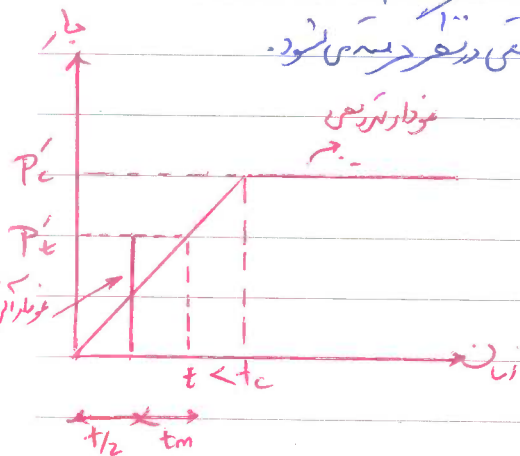 در نظر گرفته می شود.
بار
نمودار تدریجی
P'c
P't
نمودار آنی
t < tc
زمان
t/2 tm